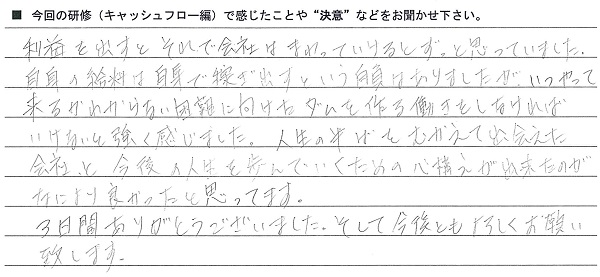 ■ 今回の研修（キャッシュフロー編）で感じたことや“決意”などをお聞かせ下さい。
利益を出すとそれで会社はまわっていけるとずっと思っていました。
自身の給料は自身で稼ぎ出すという自負はありましたが いつやって
来るかわからない困難に向けたダムを作る働きをしなければ
いけないと強く感じました。人生の半ばをむかえて出会えた
会社と今後の人生を歩んでいくための心構えが出来たのが
なにより良かったと思ってます。
3日間ありがとうございました。そして今後ともよろしくお願い
致します。